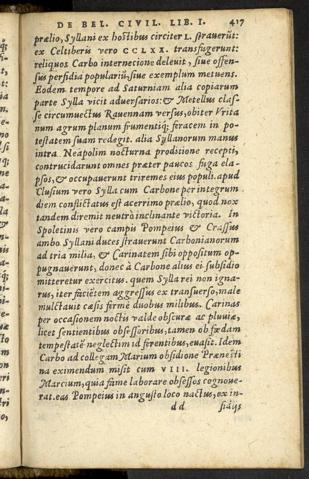 DE BEL. CIVIL. LIB. I. 417
prælio, Syllani ex hostibus circiter L. strauerūt:
ex Celtiberis vero CCLXX. transfugerunt:
reliquos Carbo internecione deleuit, siue offen-
sus perfidia populariū, siue exemplum metuens.
Eodem tempore ad Saturniam alia copiarum
parte Sylla vicit aduersarios: & Metellus clas-
se circumuectus Rauennam versus, obiter Vrita
num agrum planum frumentiq; feracem in po-
testatem suam redegit. alia Syllanorum manus
intra Neapolim nocturna proditione recepti,
contrucidarunt omnes præter paucos fuga ela-
psos, & occupauerunt triremes eius populi. apud
Clusium vero Sylla cum Carbone per integrum
diem conflictatus est acerrimo prælio, quod nox
tandem diremit neutrò inclinante victoria. In
Spoletinis vero campis Pompeius & Crassus
ambo Syllani duces strauerunt Carbonianorum
ad tria milia, & Carinatem sibi oppositum op-
pugnauerunt, donec à Carbone alius ei subsidio
mitteretur exercitus. quem Sylla rei non igna-
rus, iter faciētem aggressus ex transuerso, male
mulctauit cæsis firme duobus milibus. Carinas
per occasionem noctis valde obscuræ ac pluuiæ,
licet sentientibus obsessoribus, tamen ob fœdam
tempestatē neglectim id ferentibus, euasit. Idem
Carbo ad collegam Marium obsidione Prænesti
na eximendum misit cum VIII. legionibus
Marcium, quia fame laborare obsessos cognoue-
rat. eas Pompeius in angusto loco nactus, ex in-
dd sidijs